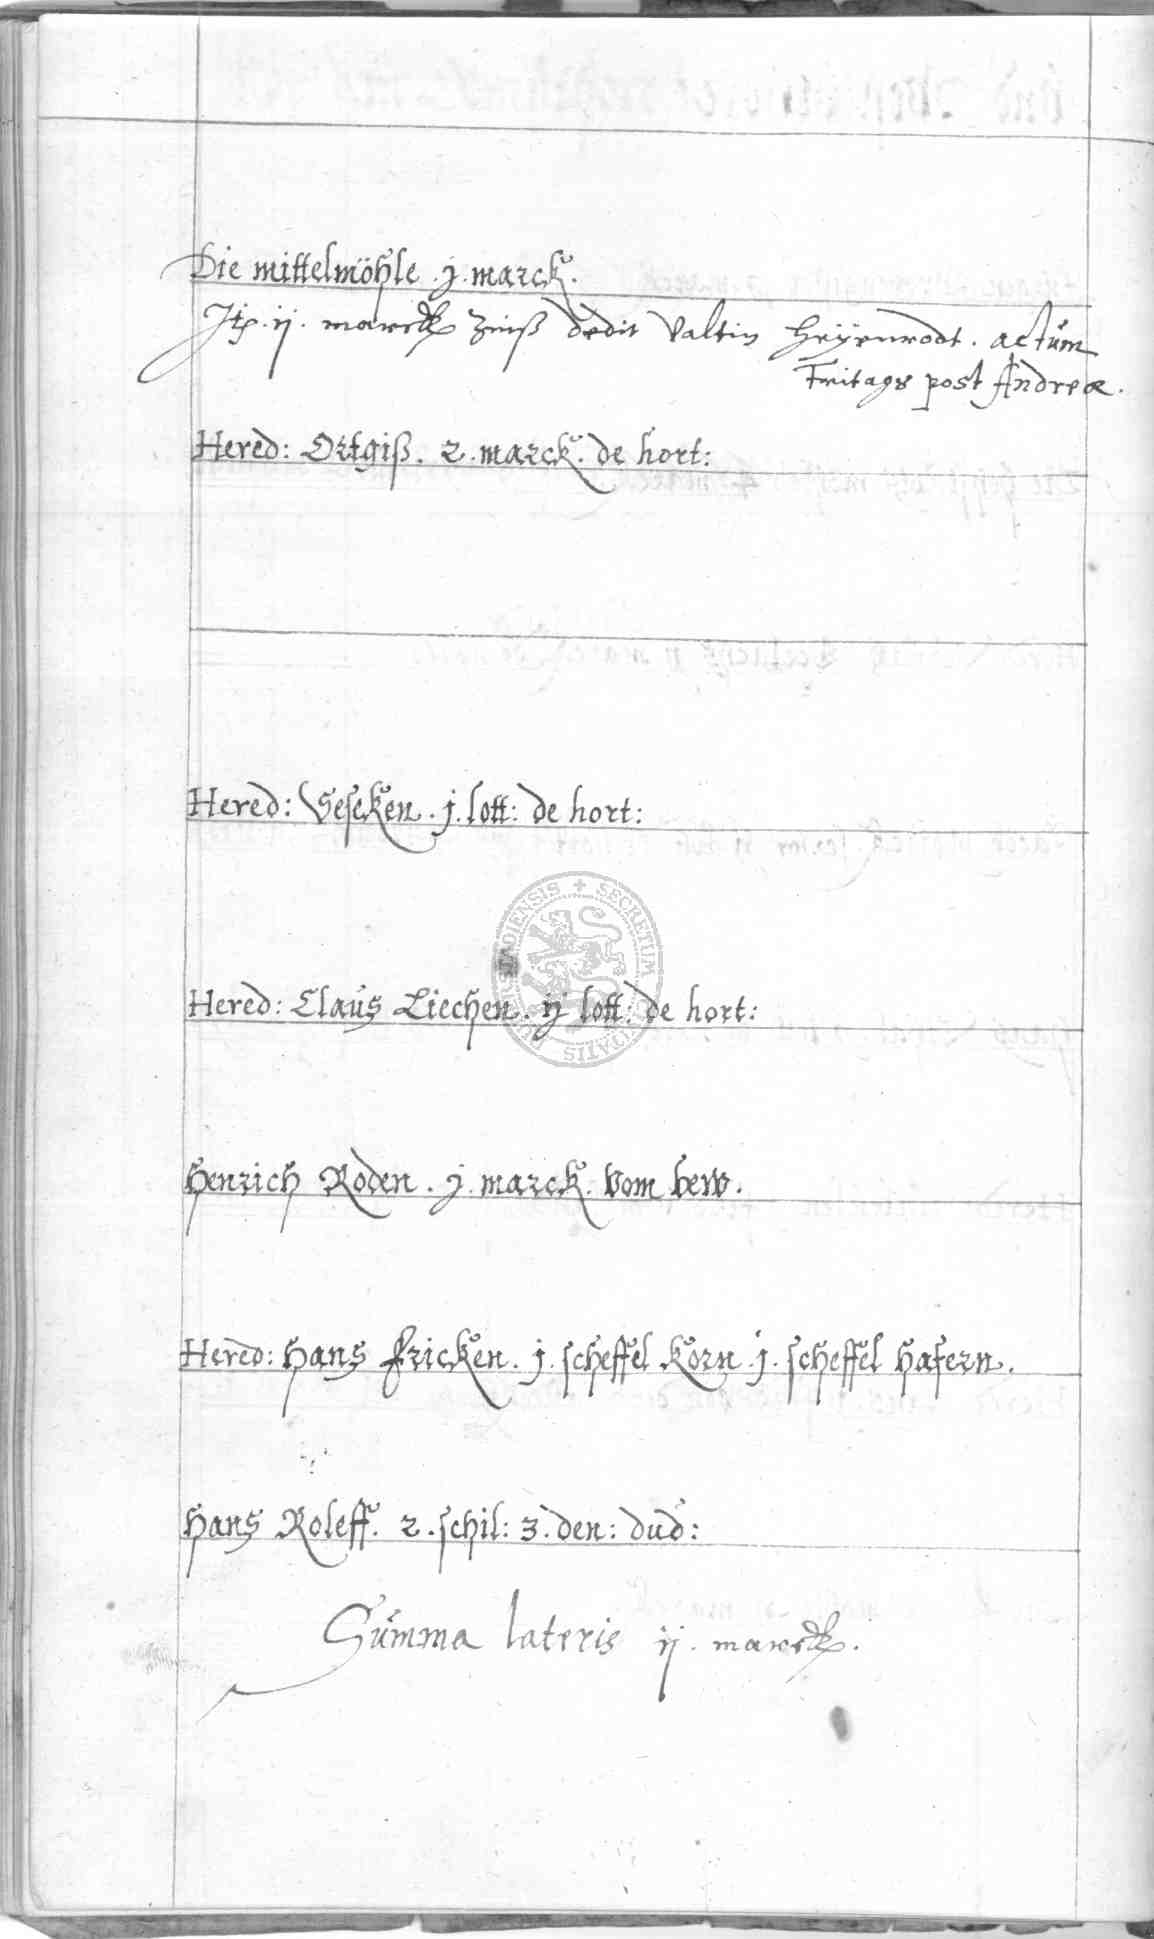 Die mittelmöhle . j . marck .
Jtp . ij . marck zinß dedit Valtin Heÿenrodt . actum
Freitags post Andreæ .
Hered : Ortgiß . 2 . marck . de hort :
Hered : Veseken . j . lott : de hort :
Hered : Claus Liechen . ij lott : de hort :
Henrich Roden . j . marck . Vom bew .
Hered : Hans Fricken . j . scheffel Korn . j . scheffel Hafern .
Hans Roleff . 2 . schil : 3 . den : dud :
Summa lateris ij . marck .
SECRETUM CIVITATIS